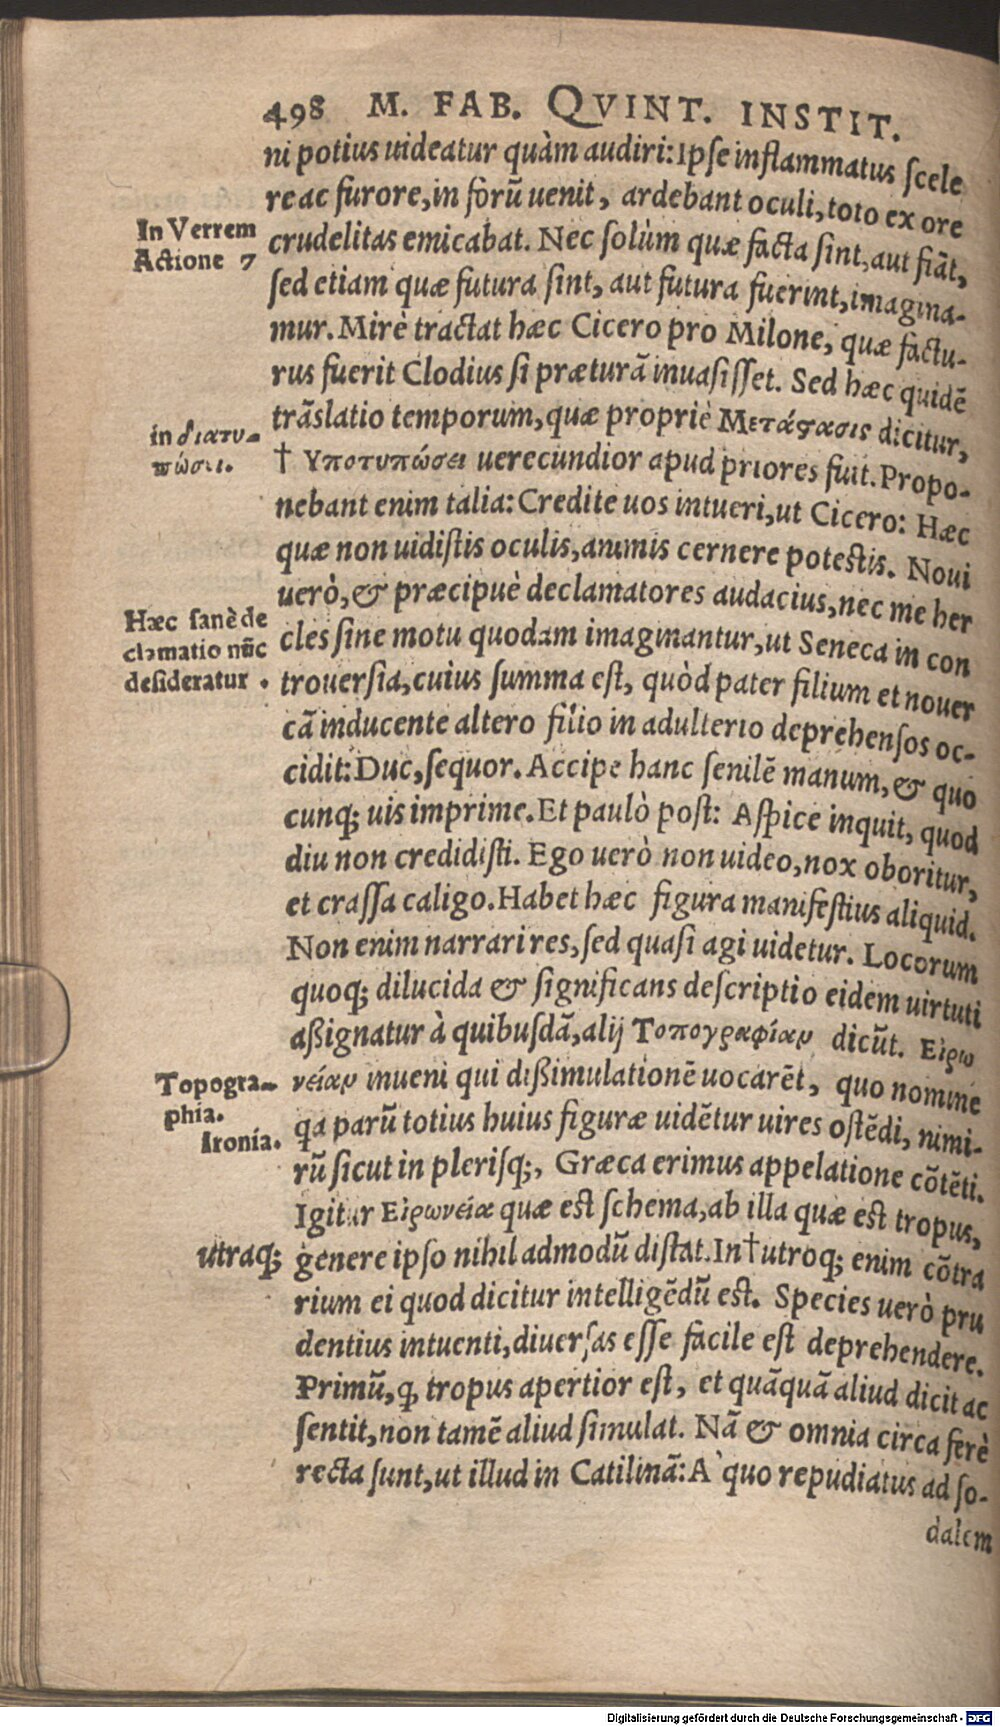 498 M. FAB. QVINT. INSTIT.
ni potius uideatur quàm audiri: Ipse inflammatus scele
re ac furore, in forũ uenit, ardebant oculi, toto ex ore
In Verrem
Actione 7
crudelitas emicabat. Nec solùm quæ facta sint, aut fiãt,
sed etiam quæ futura sint, aut futura fuerint, imagina-
mur. Mirè tractat hæc Cicero pro Milone, quæ factu-
rus fuerit Clodius si præturã inuasisset. Sed hæc quidẽ
trãslatio temporum, quæ propriè Μετάϛασις dicitur,
in διατυ-
πώσει.
† Υποτυπώσει uerecundior apud priores fuit. Propo-
nebant enim talia: Credite uos intueri, ut Cicero: Hæc
quæ non uidistis oculis, animis cernere potestis. Noui
uerò, & præcipuè declamatores audacius, nec me her
Hæc sanè de
clamatio nũc
desideratur.
cles sine motu quodam imaginantur, ut Seneca in con
trouersia, cuius summa est, quòd pater filium et nouer
cã inducente altero filio in adulterio deprehensos oc-
cidit: Duc, sequor. Accipe hanc senilẽ manum, & quo
cunq; uis imprime. Et paulò post: Aspice inquit, quod
diu non credidisti. Ego uerò non uideo, nox oboritur,
et crassa caligo. Habet hæc figura manifestius aliquid.
Non enim narrari res, sed quasi agi uidetur. Locorum
quoq; dilucida & significans descriptio eidem uirtuti
aßignatur à quibusdã, alij Τοπογραφίαν dicũt. Εἰρω
Topogra-
phía.
Ironía.
νείαν inueni qui dißimulationẽ uocarẽt, quo nomine
qa parũ totius huius figuræ uidẽtur uires ostẽdi, nimi-
rũ sicut in plerisq;, Græca erimus appelatione cõtẽti.
Igitur Εἰρωνεία quæ est schema, ab illa quæ est tropus,
utraq;
genere ipso nihil admodũ distat. In † utroq; enim cõtra
rium ei quod dicitur intelligẽdũ est. Species uerò pru
dentius intuenti, diuersas esse facile est deprehendere.
Primũ, q̃ tropus apertior est, et quãquã aliud dicit ac
sentit, non tamẽ aliud simulat. Nã & omnia circa ferè
recta sunt, ut illud in Catilinã: A` quo repudiatus ad so-
dalem
Digitalisierung gefördert durch die Deutsche Forschungsgemeinschaft - DFG